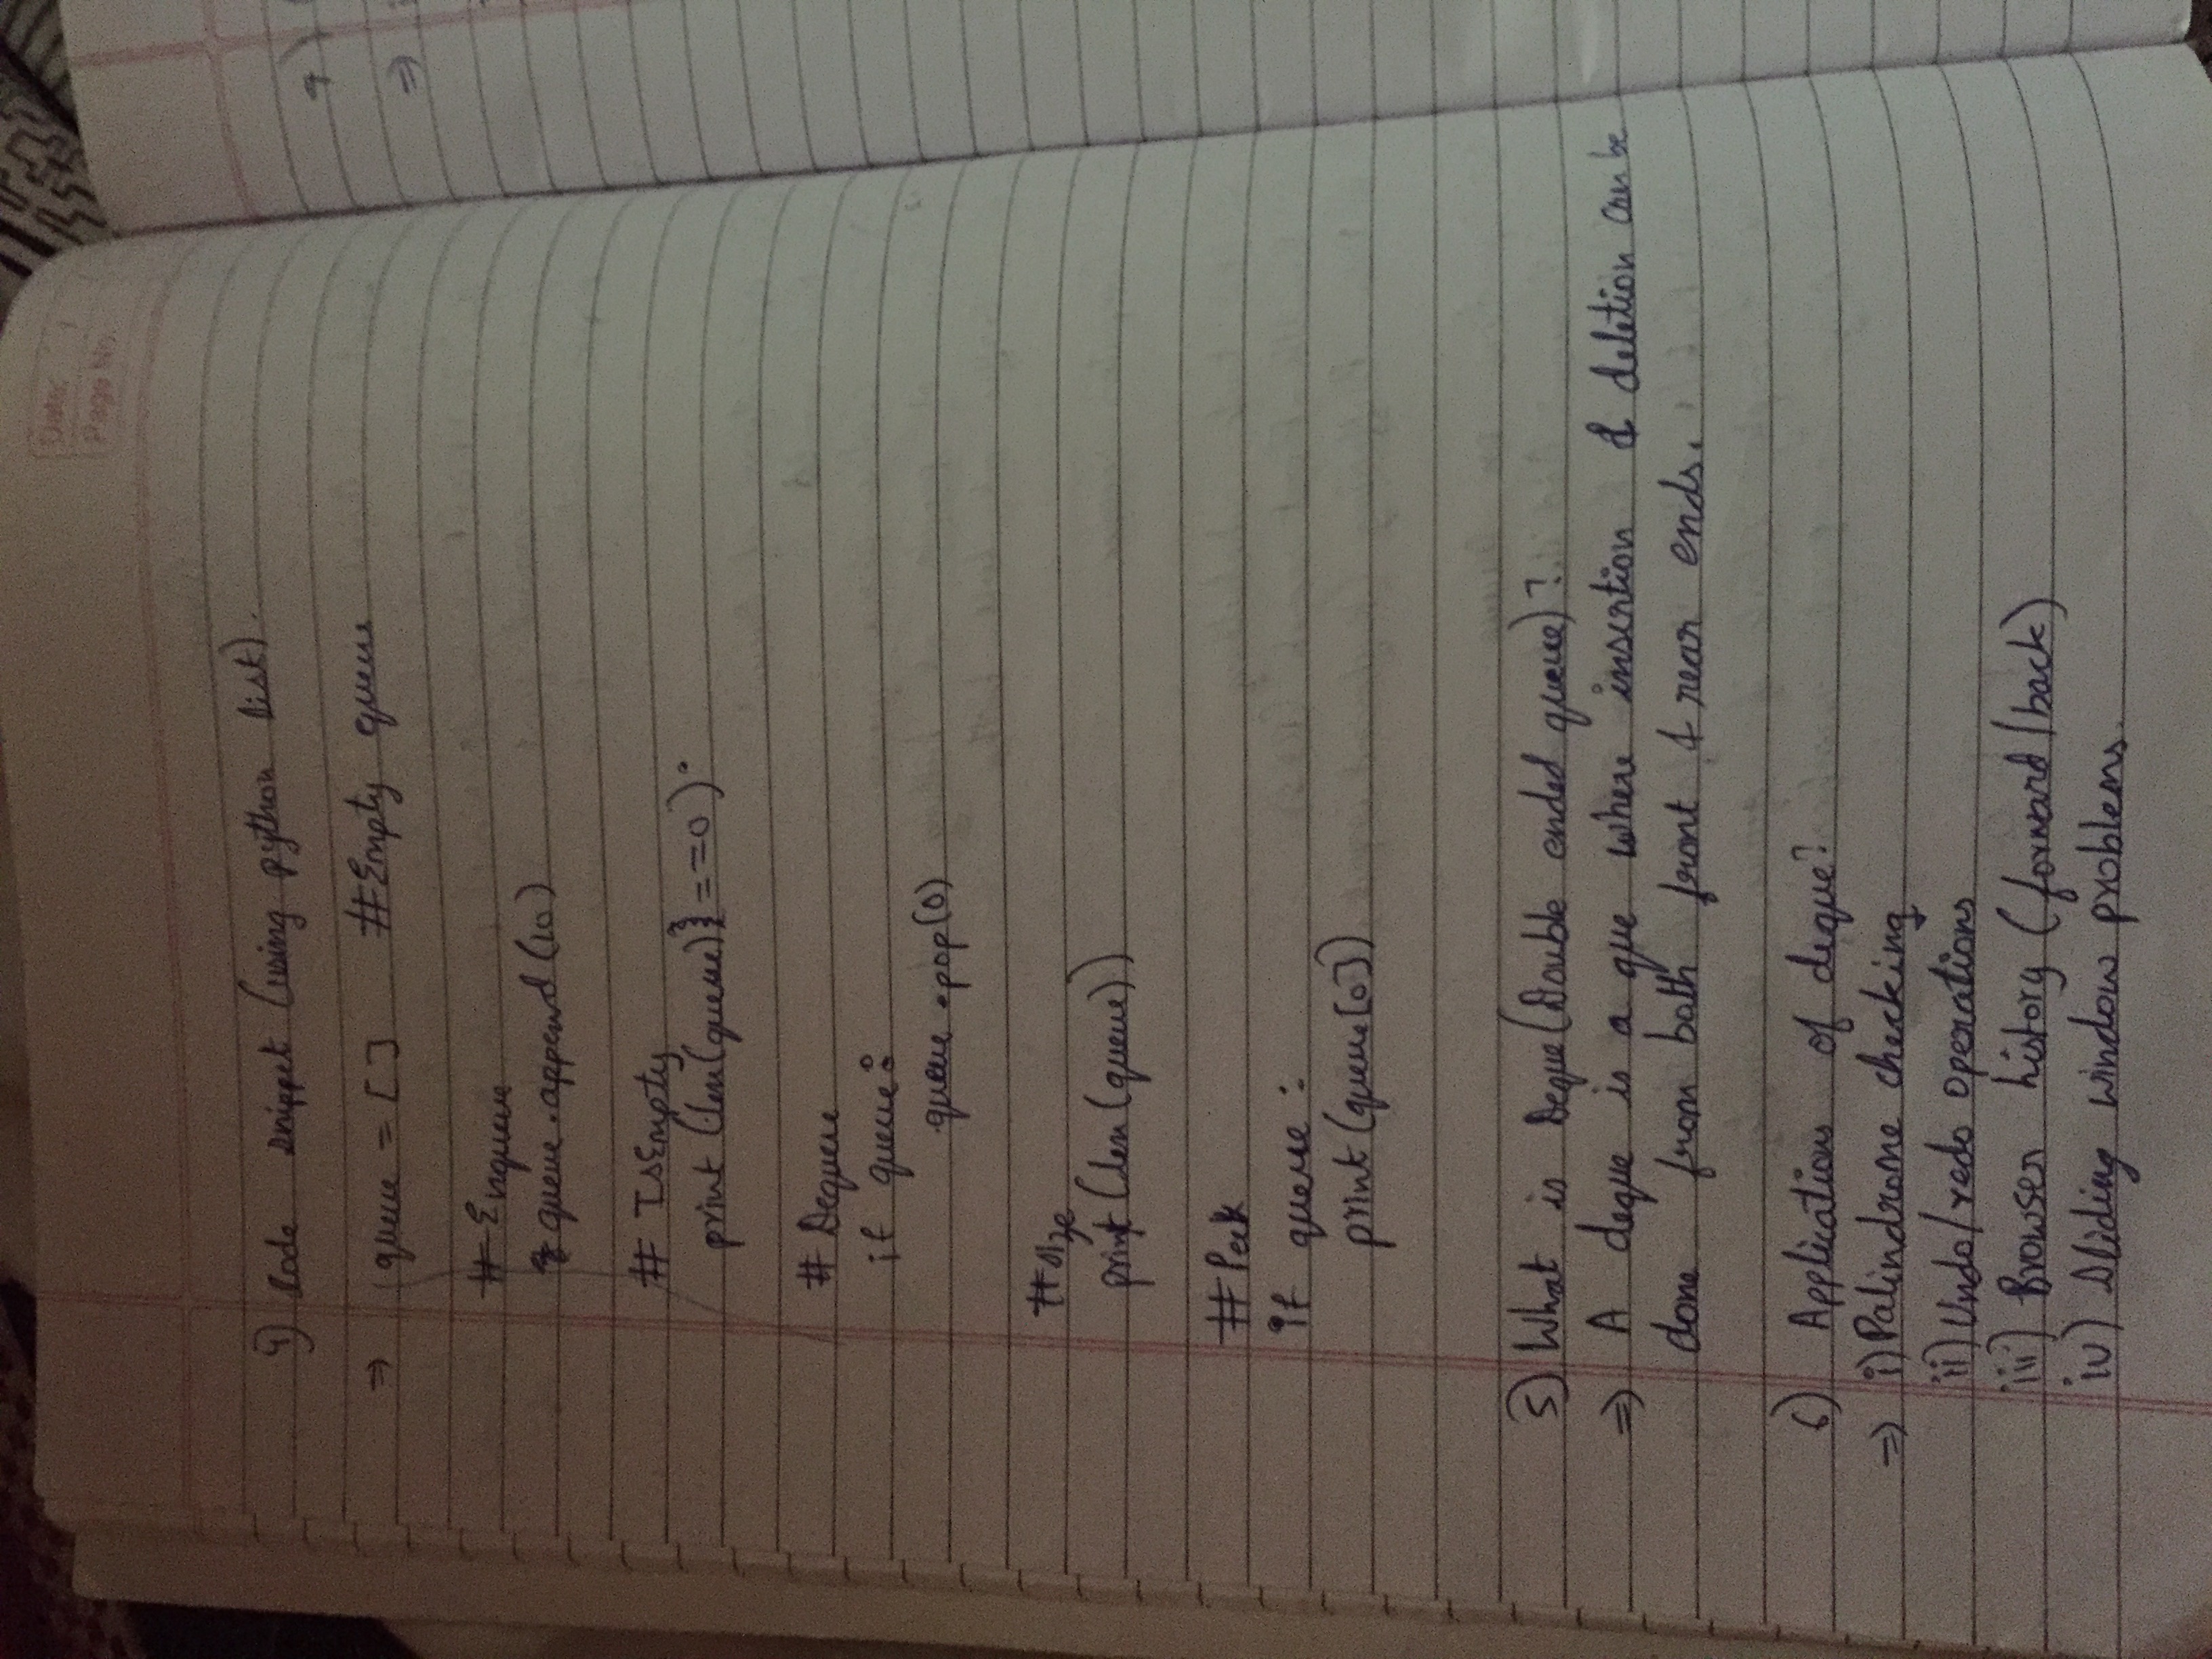 Date:
Page No.
4) Code snippet (using python list).
⇒ queue = [ ] #Empty queue
# Enqueue
queue.append(10)
# IsEmpty
print (len(queue)==0):
# Dequeue
if queue:
queue.pop(0)
#size
print (len(queue))
#Peek
if queue :
print (queue[0])
5) What is Deque (Double ended queue)?
⇒ A deque is a que where insertion & deletion can be
done from both front & rear ends.
6) Applications of deque?
⇒ i) Palindrome checking
ii) Undo/redo operations
iii) Browser history (forward/back)
iv) Sliding window problems.